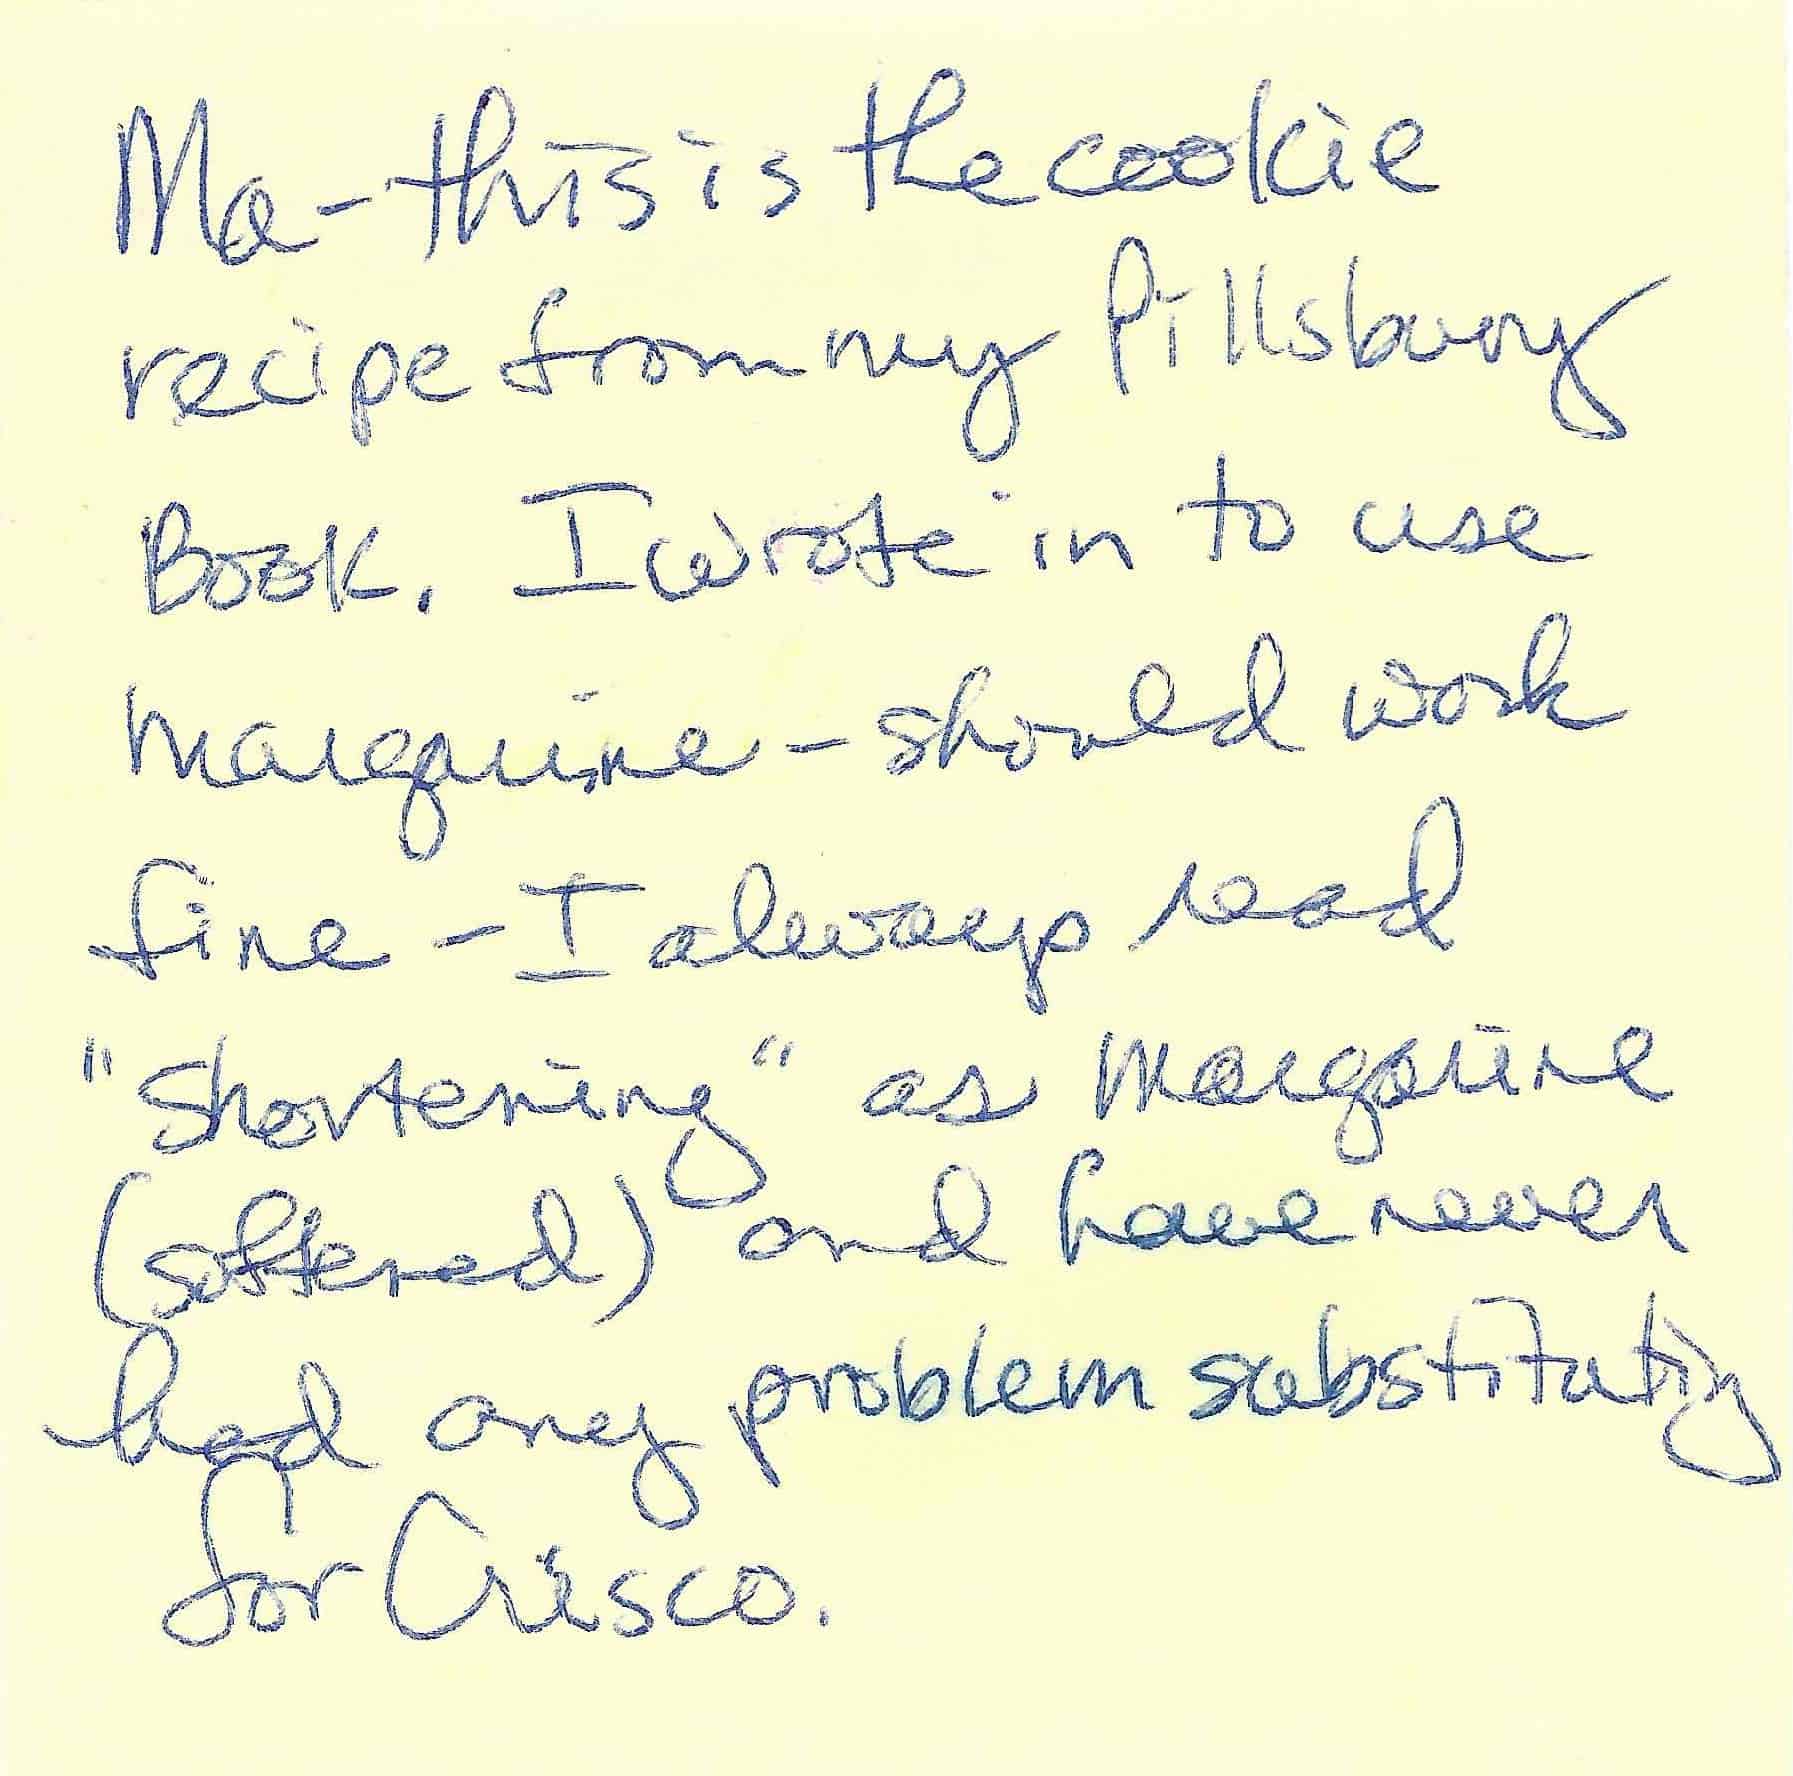 Ma - this is the cookie
recipe from my Pillsbury
Book. I wrote in to use
margarine - should work
fine - I always read
"shortening" as margarine
(softened) and have never
had any problem substituting
for Crisco.